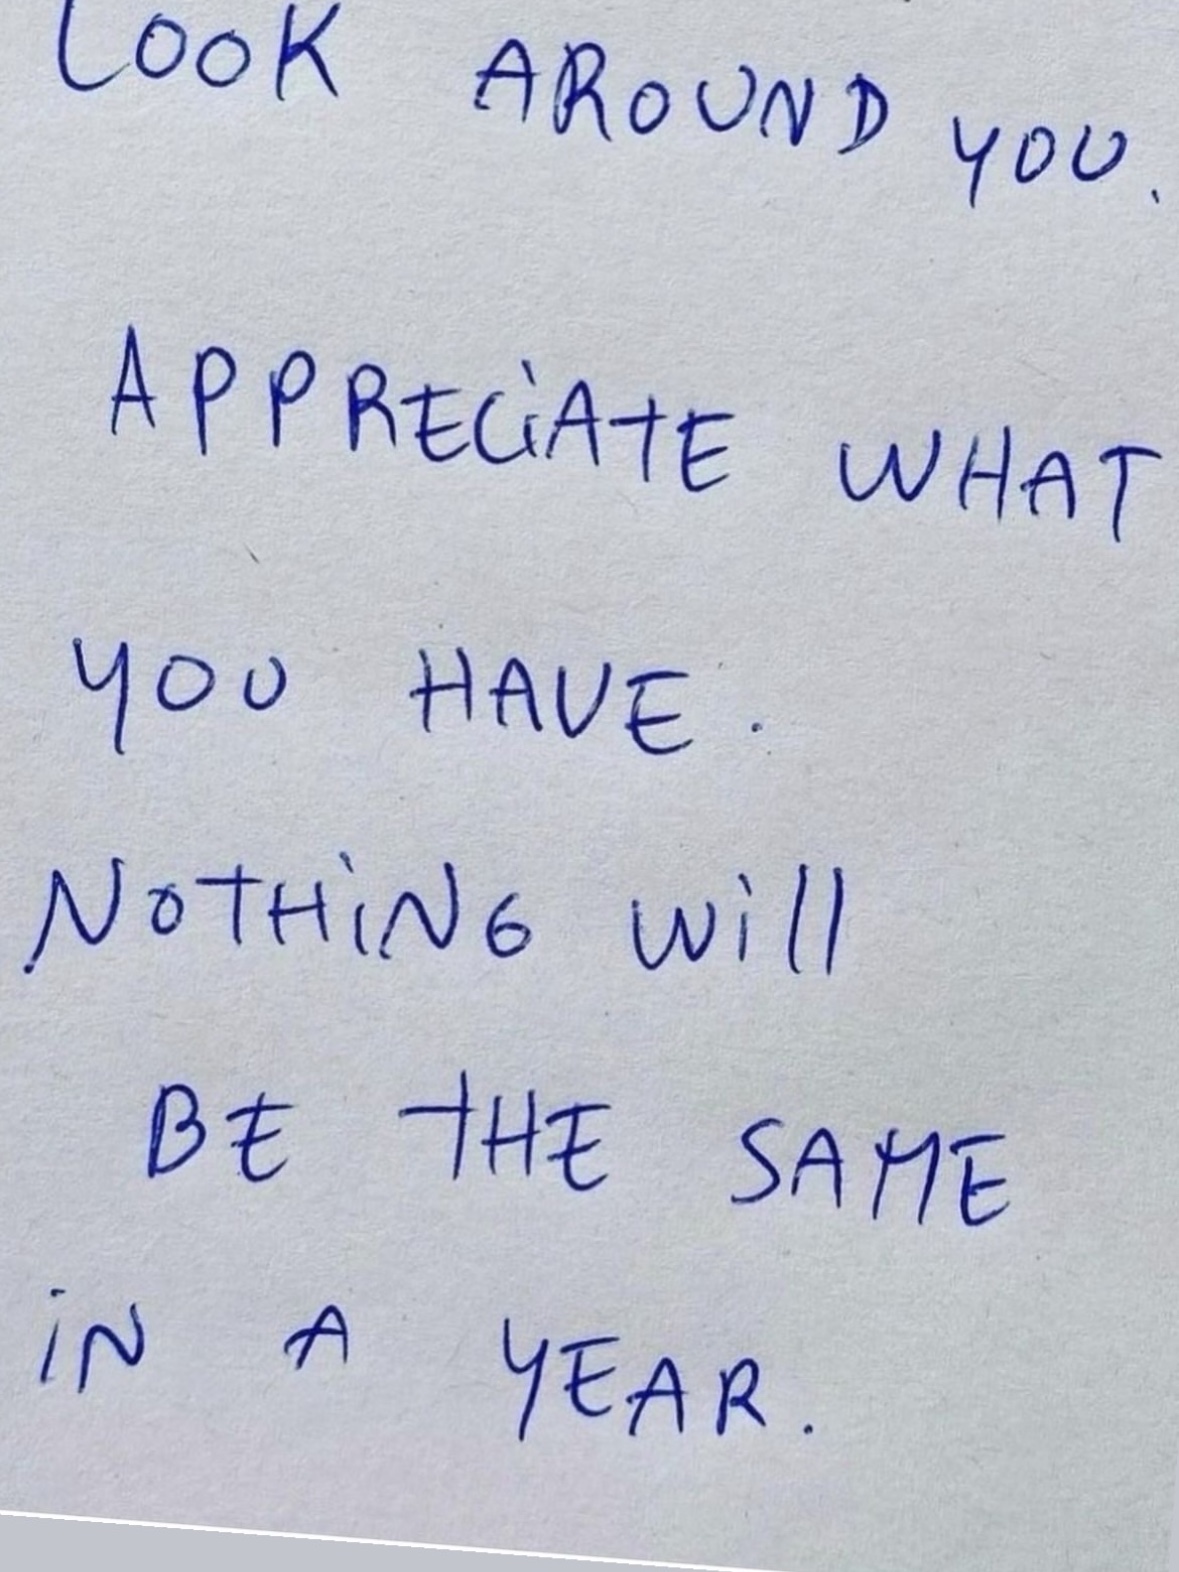 LOOK AROUND YOU.
APPRECiATE WHAT
YOU HAVE.
NOTHiNG Will
BE THE SAME
iN A YEAR.